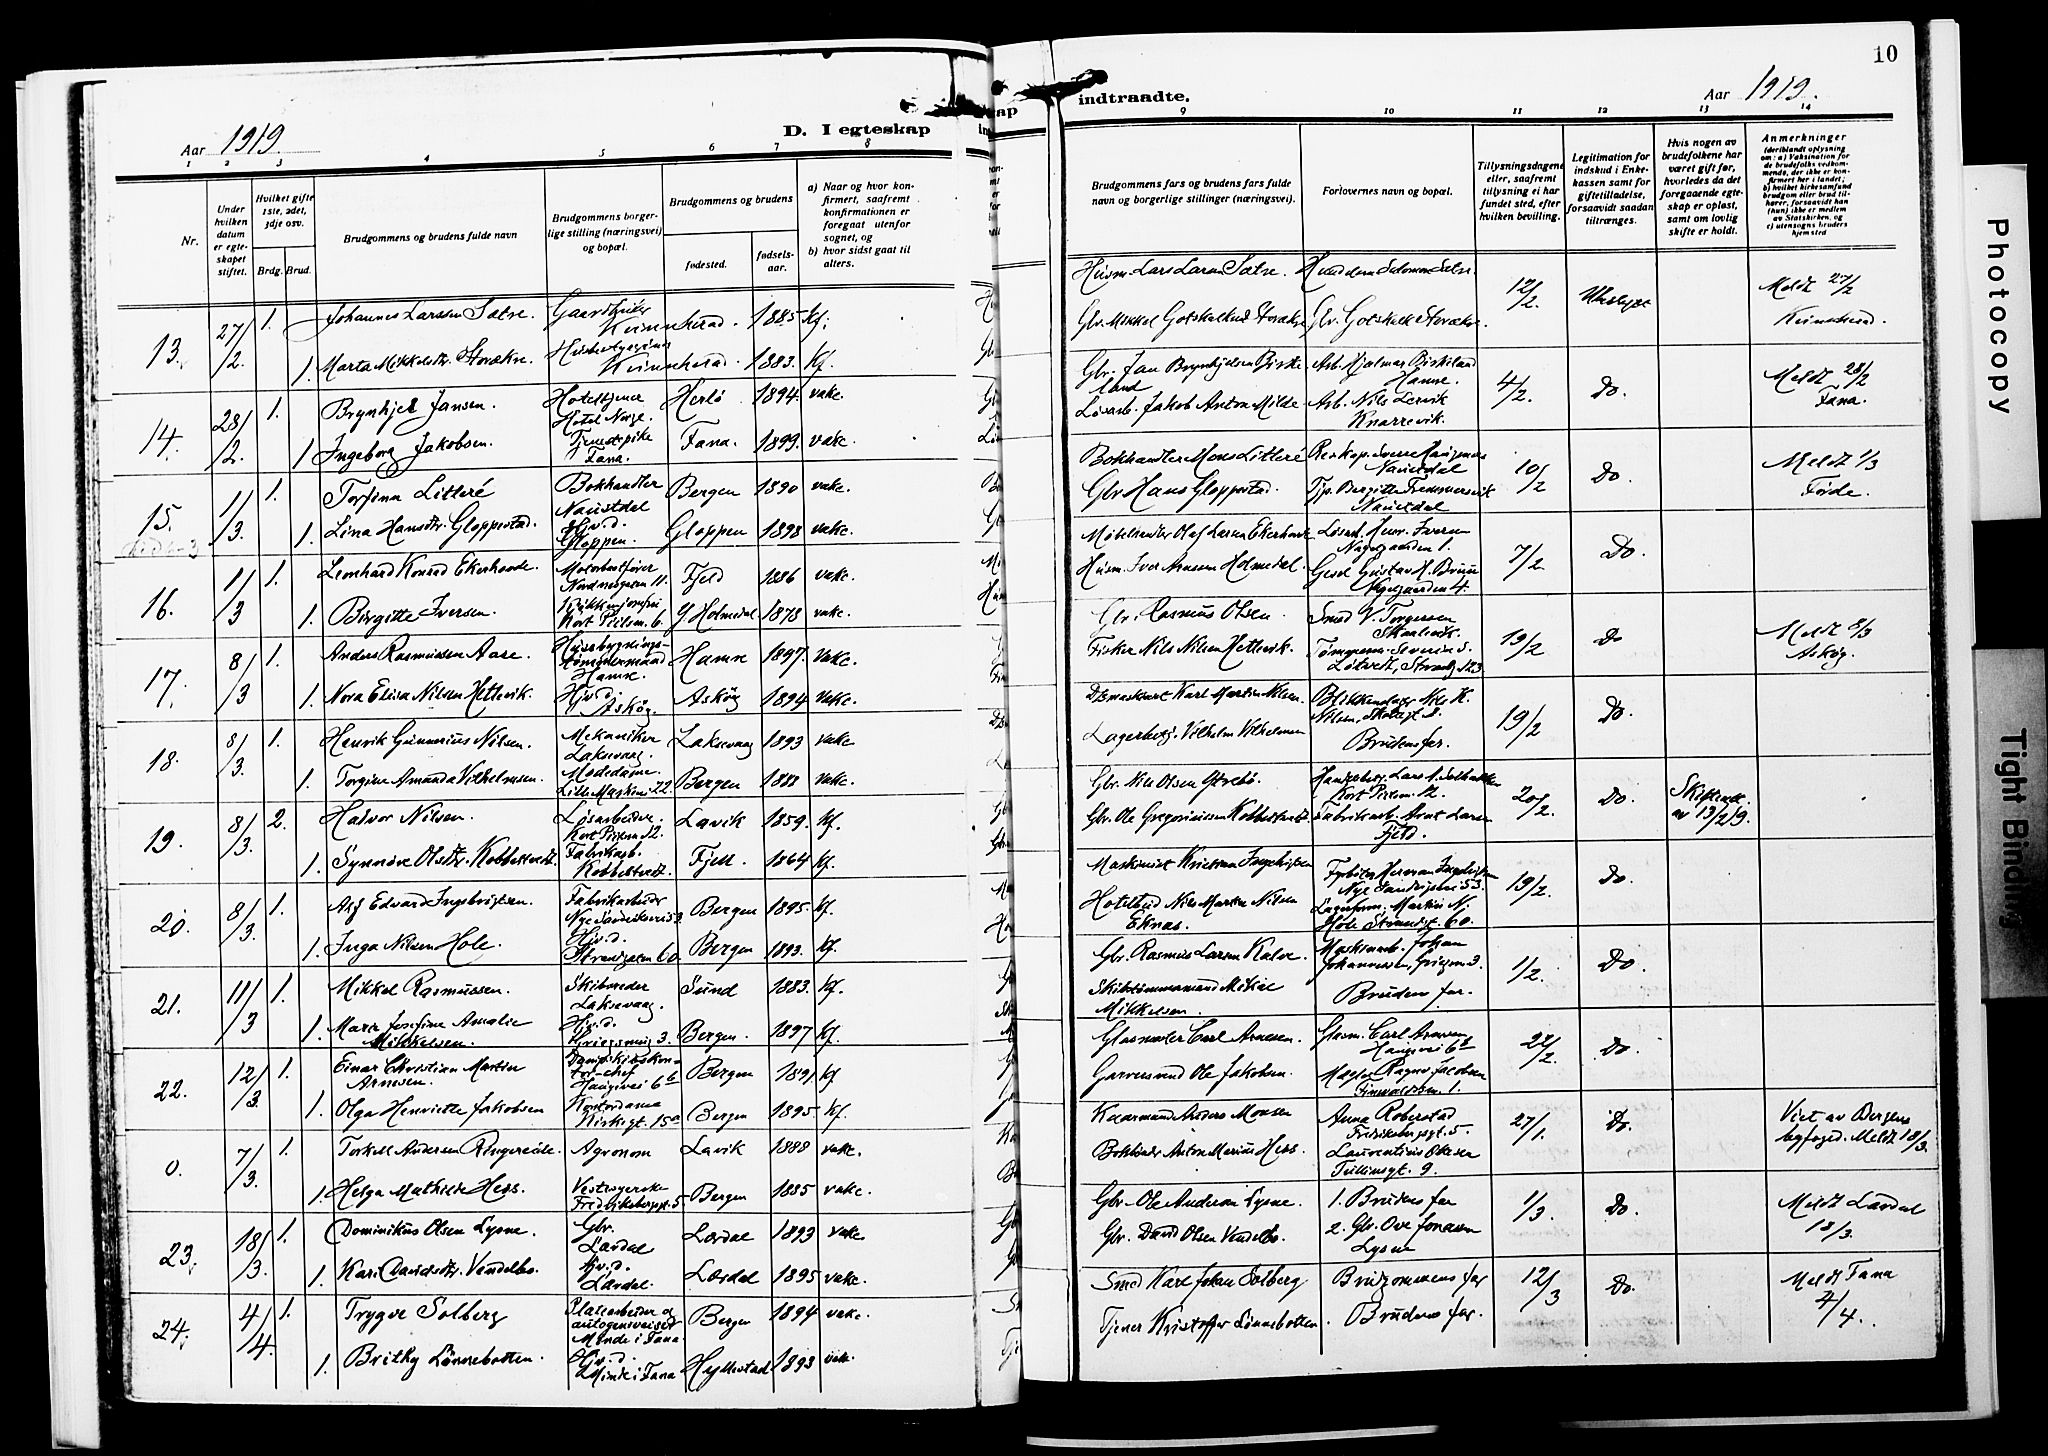 Aar 1919.
D. I egteskap
1 2 3 4 5 6 7 8
Nr.
Under hvilken datum er egteskapet stiftet.
Hvilket gifte 1ste, 2det, 3dje osv.
Brdg. Brud.
Brudgommens og brudens fulde navn
Brudgommens borgerlige stilling (næringsvei) og bopæl.
Brudgommens og brudens
fødested.
fødselsaar.
a) Naar og hvor konfirmert, saafremt konfirmationen er foregaat utenfor sognet, og
b) hvor sidst gaat til alters.
13. 27/2. 1. Johannes Larssen Sætre. Gaardbruker Kvinnherad. 1885 kf.
1. Marta Mikkelsdtr. Kvinnherad. 1883. kf.
14. 28/2. 1. Brynhjel Jansen. Hoteltjener Hotel Norge. Herlö 1894. vakc.
1 Ingeborg Jakobsen. Tjenestepike Fana. Fana. 1899. vakc.
15. 1/3. 1. Torfinn Litleré Bokhandler Naustdal Bergen 1890 vakc.
1. Lina Hansdtr. Gloppestad. Hjv.d. Gloppen. Gloppen 1898 vakc.
16. 1/3 1. Leonhard Konrad Ekerhovde. Motorbaatfører Nordnesgaten 11. Fjeld 1886 vakc.
1. Birgitte Iversen. Kort Piilsm. 6. Y. Holmedal 1878 vakc.
17. 8/3 1. Anders Rasmussen Aase. Husbygningstømmermand Hamre. Hamre 1897. vakc.
1. Nora Elisa Nilsen Hetlevik. Hjv.d. Askög. Askög 1894 vakc.
18. 8/3. 1. Henrik Gunnerius Nilsen. Mekaniker Laksevaag. Laksevaag 1893 vakc
1. Torgine Amanda Vilhelmsen. Modedame. Lille Markevei 22 Bergen 1888 vakc.
19. 8/3. 2. Halvor Nilsen. Løsarbeider. Kort Piilsm 12. Lavik 1859. kf.
1. Synnöve Olsdtr. Kobbeltvedt. Fabrikarb. Kobbeltvedt. Fjell 1864 kf.
20. 8/3. 1. Alf Edvard Ingebrigtsen. Fabrikarbeider Nye Sandviksvei 53 Bergen 1895. kf.
1. Inga Nilsen Hole. Hjv.d. Strandgaten 60 Bergen 1893. kf.
21. 11/3 1. Mikkel Rasmussen. Skibsreder Laksevaag. Sund 1883. kf.
1. Marie Josefine Amalie Mikkelsen. Hjv.d. Griegsmug 3. Bergen. 1897 kf.
22. 12/3. 1. Einar Christian Martin Arnesen. Dampskibskontor-chef Haugevei 6b Bergen 1891 kf
1. Olga Henriette Jakobsen Kontordame Kirkegt. 15a Bergen 1895. kf.
0. 7/3. 1. Torkell Andersen Ringereide. Agronom Lavik 1888 vakc.
1. Helga Mathilde Hess. Fredriksbergsgt. 5 Bergen 1885 vakc.
23. 18/3. 1. Dominikus Olsen Lysne. Gbr. Lærdal Lærdal 1893 vakc.
1. Kari Davidsdtr. Vendelbo. Hjv.d. Lærdal. Lærdal 1895 vakc.
24. 4/4. 1. Trygve Solberg Platearbeider og autogensveiser Minde i Fana. Bergen 1894 vakc.
1. Brithy Lönnebotten. Hjv.d. Minde i Fana Hyllestad 1893 vakc.
indtraadte.
Aar 1919.
10
9 10 11 12 13 14
Brudgommens fars og brudens fars fulde navn og borgerlige stillinger (næringsvei).
Forlovernes navn og bopæl.
Tillysningsdagene eller, saafremt tillysning ei har fundet sted, efter hvilken bevilling.
Legitimation for indskud i Enkekassen samt for giftetilladelse, forsaavidt saadan tiltrænges.
Hvis nogen av brudefolkene har været gift før, hvorledes da det foregaaende egteskap er opløst, samt om lovlig skifte er holdt.
Anmerkninger (deriblandt oplysning om: a) Vaksination for de brudefolks vedkommende, der ikke er konfirmert her i landet; b) hvilket kirkesamfund brudgom eller brud tilhører, forsaavidt han (hun) ikke er medlem av Statskirken, og c) utensogns bruders hjemsted
Husm. Lars Larsen Sætre. Salomon Sætre. 12/2. Utstedt Meldt 27/2 Kvinnherad.
Gbr. Mikkel Gotskalksen Gbr. Gotskalk
Gbr. Jan Brynhjelsen Birkeland Arb. Hjalmar Birkeland Hamre. 4/2. Do. Meldt 28/2 Fana.
Løsarb. Jakob Anton Milde Arb. Nils Lervik Knarrevik.
Bokhandler Mons Litleré Naustdal 10/2 Do. Meldt 1/3 Førde.
Gbr. Hans Gloppestad. Tjp. Bergitte Naustdal
Møbelhandler Olaf Larsen Ekerhovde Løsarb. Iversen Nygaarden 1. 7/2 Do.
Husm. Iver Arnesen Holmedal. Gustav H. Bruun Nygaarden 4.
Gbr. Rasmus Olsen. Smed V. Torgersen 19/2 Do Meldt 8/3 Askög.
Fisker Nils Nilsen Hetlevik. Tömmerm. Severin S. Strandg. 123
Karl Martin Nilsen. Blikkenslager Nils K. Nilsen, 19/2 Do.
Lagerbetj. Vilhelm Vilhelmsen Brudens far.
Gbr. Nils Olsen Lars A. Solbakken Kort Piilsm. 12. 20/2. Do. Skifteatt. av 13/2 19.
Gbr. Ole Gregoriussen Kobbeltvedt Fabrikarb. Arnt Larsen Fjeld.
Maskinist Kristian Ingebrigtsen Fyrbøter Herman Ingebrigtsen Nye Sandviksvei 53. 19/2. Do.
Hotelbud Nils Martin Nilsen Eknæs. Lagerform. Martin N. Hole Strandgt. 60.
Gbr. Rasmus Larsen Kalve. Maskinarb. Johan Johannessen, Griegsm 3. 1/2. Do.
Skibstømmermand Mikal Mikkelsen. Brudens far.
Glasmester Carl Arnesen. Glasm. Carl Arnesen Haugevei 6b 22/2. Do.
Garversvend Ole Jakobsen. Ragnv. Jacobsen 1.
Anders Monsen Anna Roberstad Fredriksbergsgt. 5. 27/1. Do. Viet av Bergens byfoged. Meldt 18/3.
Bokbinder Anton Marius Hess. Laurentius Tullinsgt. 9.
Gbr. Ole Andersen Lysne. 1. Brudens far 1/3. Do. Meldt Lærdal 18/3.
Gbr. David Olsen Vendelbo. 2. Gbr. Ove Jonassen Lysne
Smed Karl Johan Solberg Brudgommens far 12/3 Do. Meldt Fana 4/4.
Tjener Kristoffer Lönnebotten. Brudens far.
Photocopy
Tight Binding